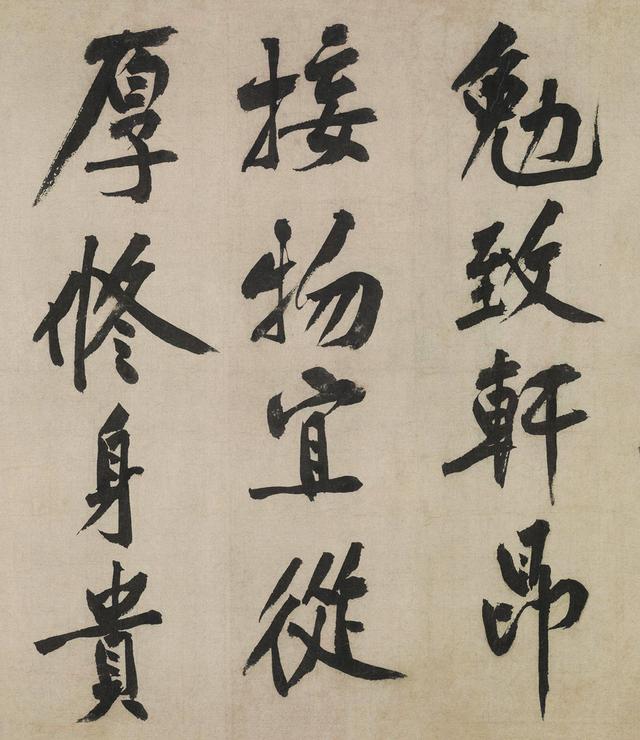 勉致軒昂
接物宜從
厚修身貴